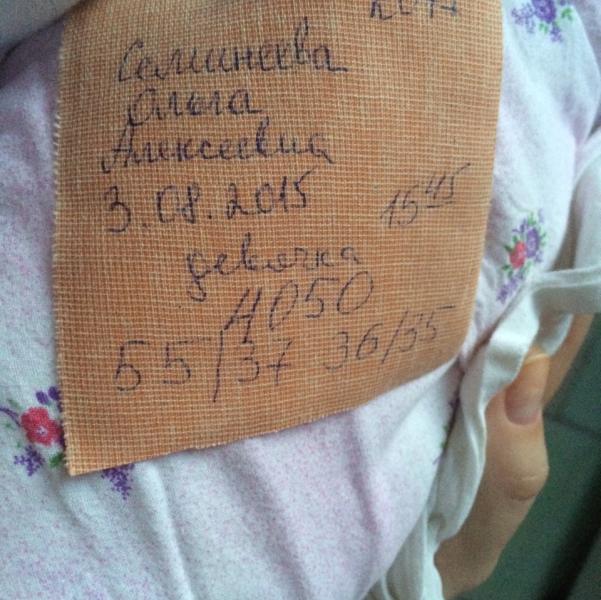 Семинеева
Ольга
Алексеевна
3.08.2015 15 45
девочка
4050
55/37 36/35